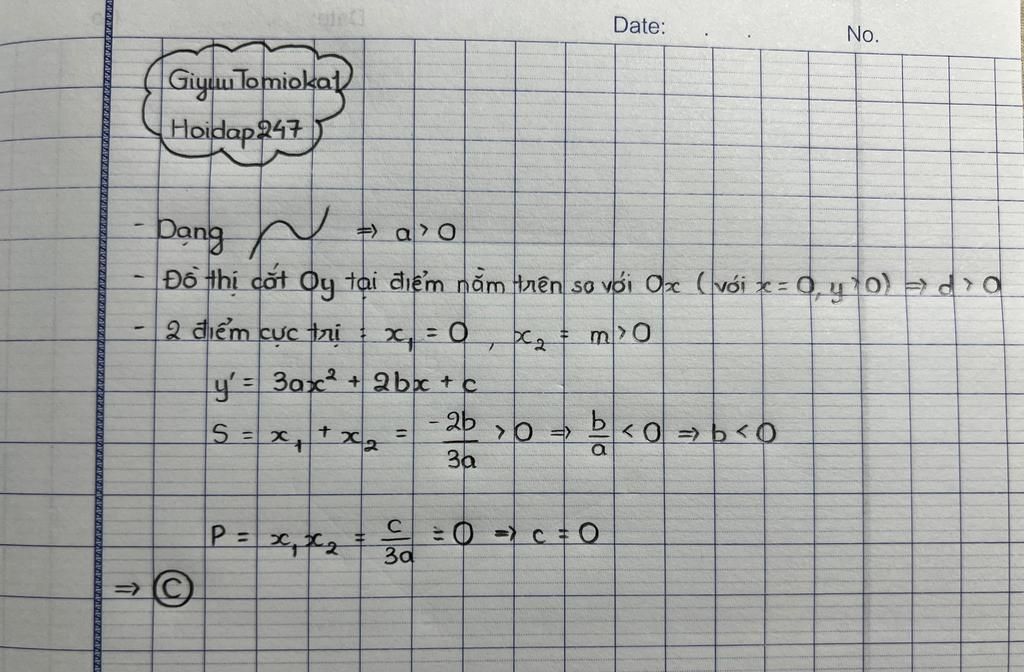 Date: . . No.
GiyuuTomioka1
Hoidap247
- Dạng ⇒ a > 0
- Đồ thị cắt Oy tại điểm nằm trên so với Ox ( với x = 0, y > 0) ⇒ d > 0
- 2 điểm cực trị : x₁ = 0 , x₂ = m > 0
y' = 3ax² + 2bx + c
S = x₁ + x₂ = -2b/3a > 0 ⇒ b/a < 0 ⇒ b < 0
P = x₁x₂ = c/3a = 0 ⇒ c = 0
⇒ C